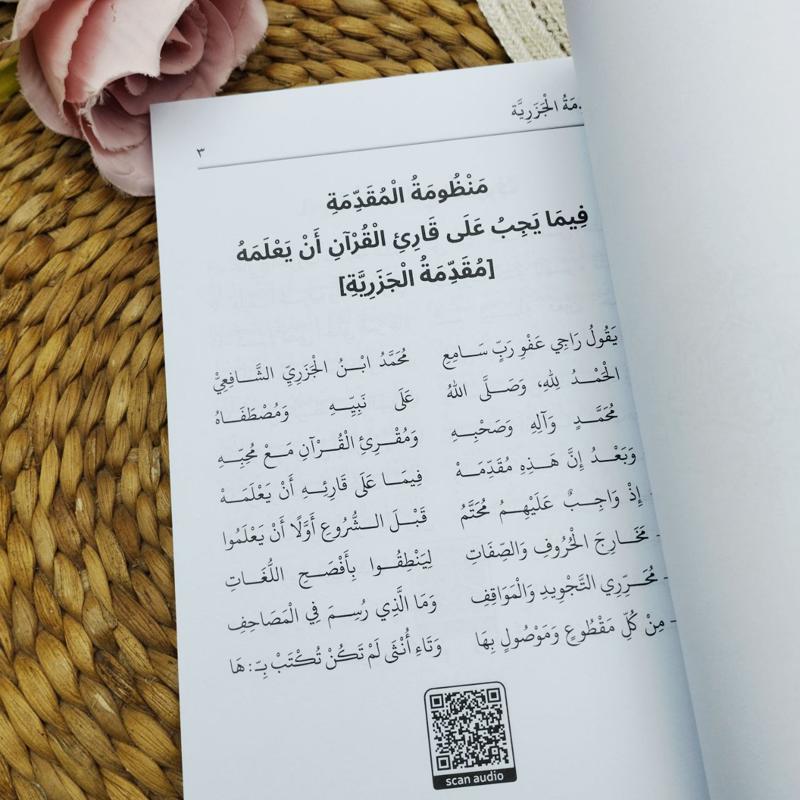 الْجَزَرِيَّة
٣
مَنْظُومَةُ الْمُقَدِّمَةِ
فِيمَا يَجِبُ عَلَى قَارِئِ الْقُرْآنِ أَنْ يَعْلَمَهُ
[مُقَدِّمَةُ الْجَزَرِيَّةِ]
يَقُولُ رَاجِي عَفْوِ رَبٍّ سَـامِعِ مُحَمَّدُ ابْـنُ الْجَزَرِيِّ الشَّـافِعِيْ
الْحَمْـدُ لِلهِ، وَصَـلَّى اللهُ عَلَى نَبِيِّـهِ وَمُصْطَفَـاهُ
مُحَمَّـدٍ وَآلِهِ وَصَحْبِـهِ وَمُقْـرِئِ الْقُـرْآنِ مَـعْ مُحِبِّـهِ
وَبَعْـدُ إِنَّ هَـذِهِ مُقَدِّمَـهْ فِيمَـا عَلَى قَارِئِـهِ أَنْ يَعْلَمَـهْ
إِذْ وَاجِـبٌ عَلَيْهِـمُ مُحَتَّمُ قَبْـلَ الـشُّرُوعِ أَوَّلًا أَنْ يَعْلَمُوا
- مَخَـارِجَ الْحُرُوفِ وَالصِّفَاتِ لِيَنْطِقُـوا بِأَفْصَـحِ اللُّغَـاتِ
- مُحَـرِّرِي التَّجْوِيدِ وَالْمَوَاقِفِ وَمَا الَّذِي رُسِـمَ فِي الْمَصَاحِفِ
- مِنْ كُلِّ مَقْطُوعٍ وَمَوْصُولٍ بِهَا وَتَاءِ أُنْثَى لَمْ تَكُنْ تُكْتَبْ بِـ: هَا
scan audio